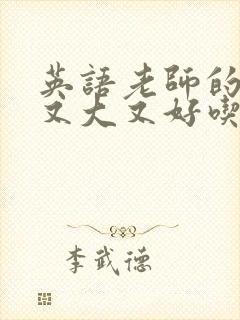 英語老師的
又大又好喫
李武德